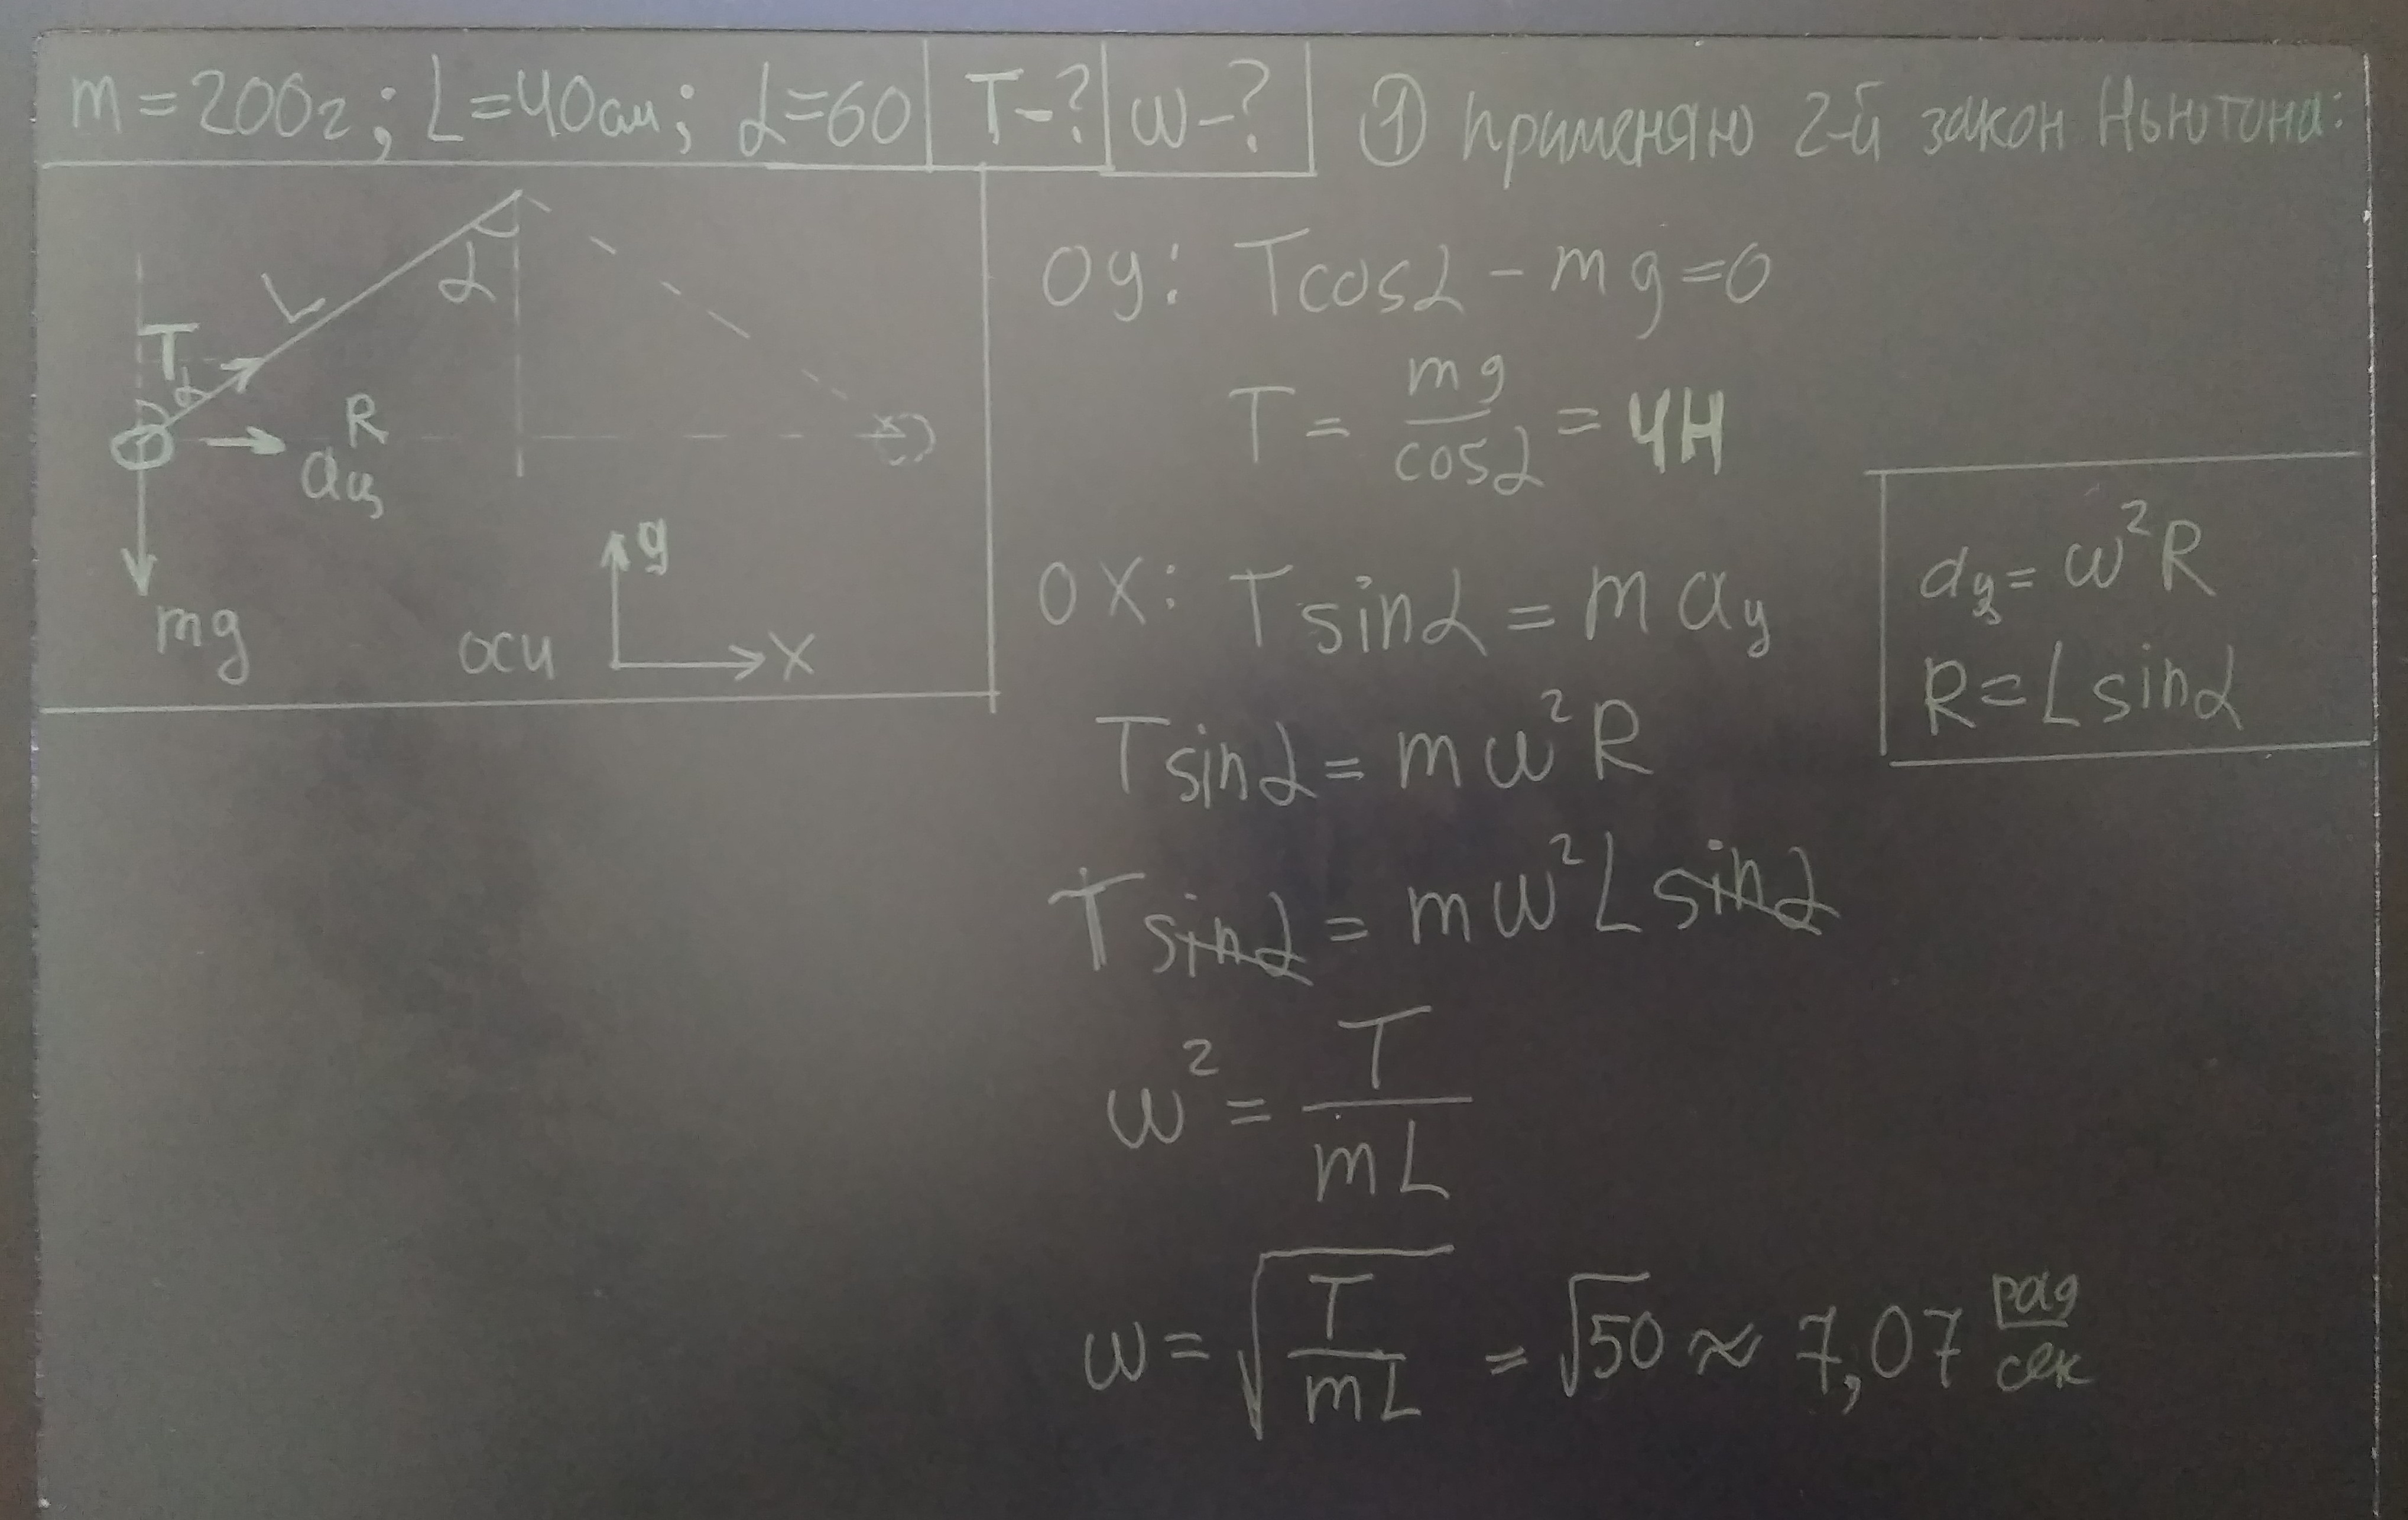 m=200г; L=40см; α=60 T-? ω-? ① применяю 2-й закон Ньютона:
L
α
T
α
R
aц
mg
оси
y
x
OY: Tcosα - mg=0
T = mg/cosα = 4Н
OX: T sinα = m aц
aц= ω²R
R=L sinα
T sinα = m ω²R
T sinα = m ω²L sinα
ω² = T/mL
ω = √(T/mL) = √50 ≈ 7,07 рад/сек